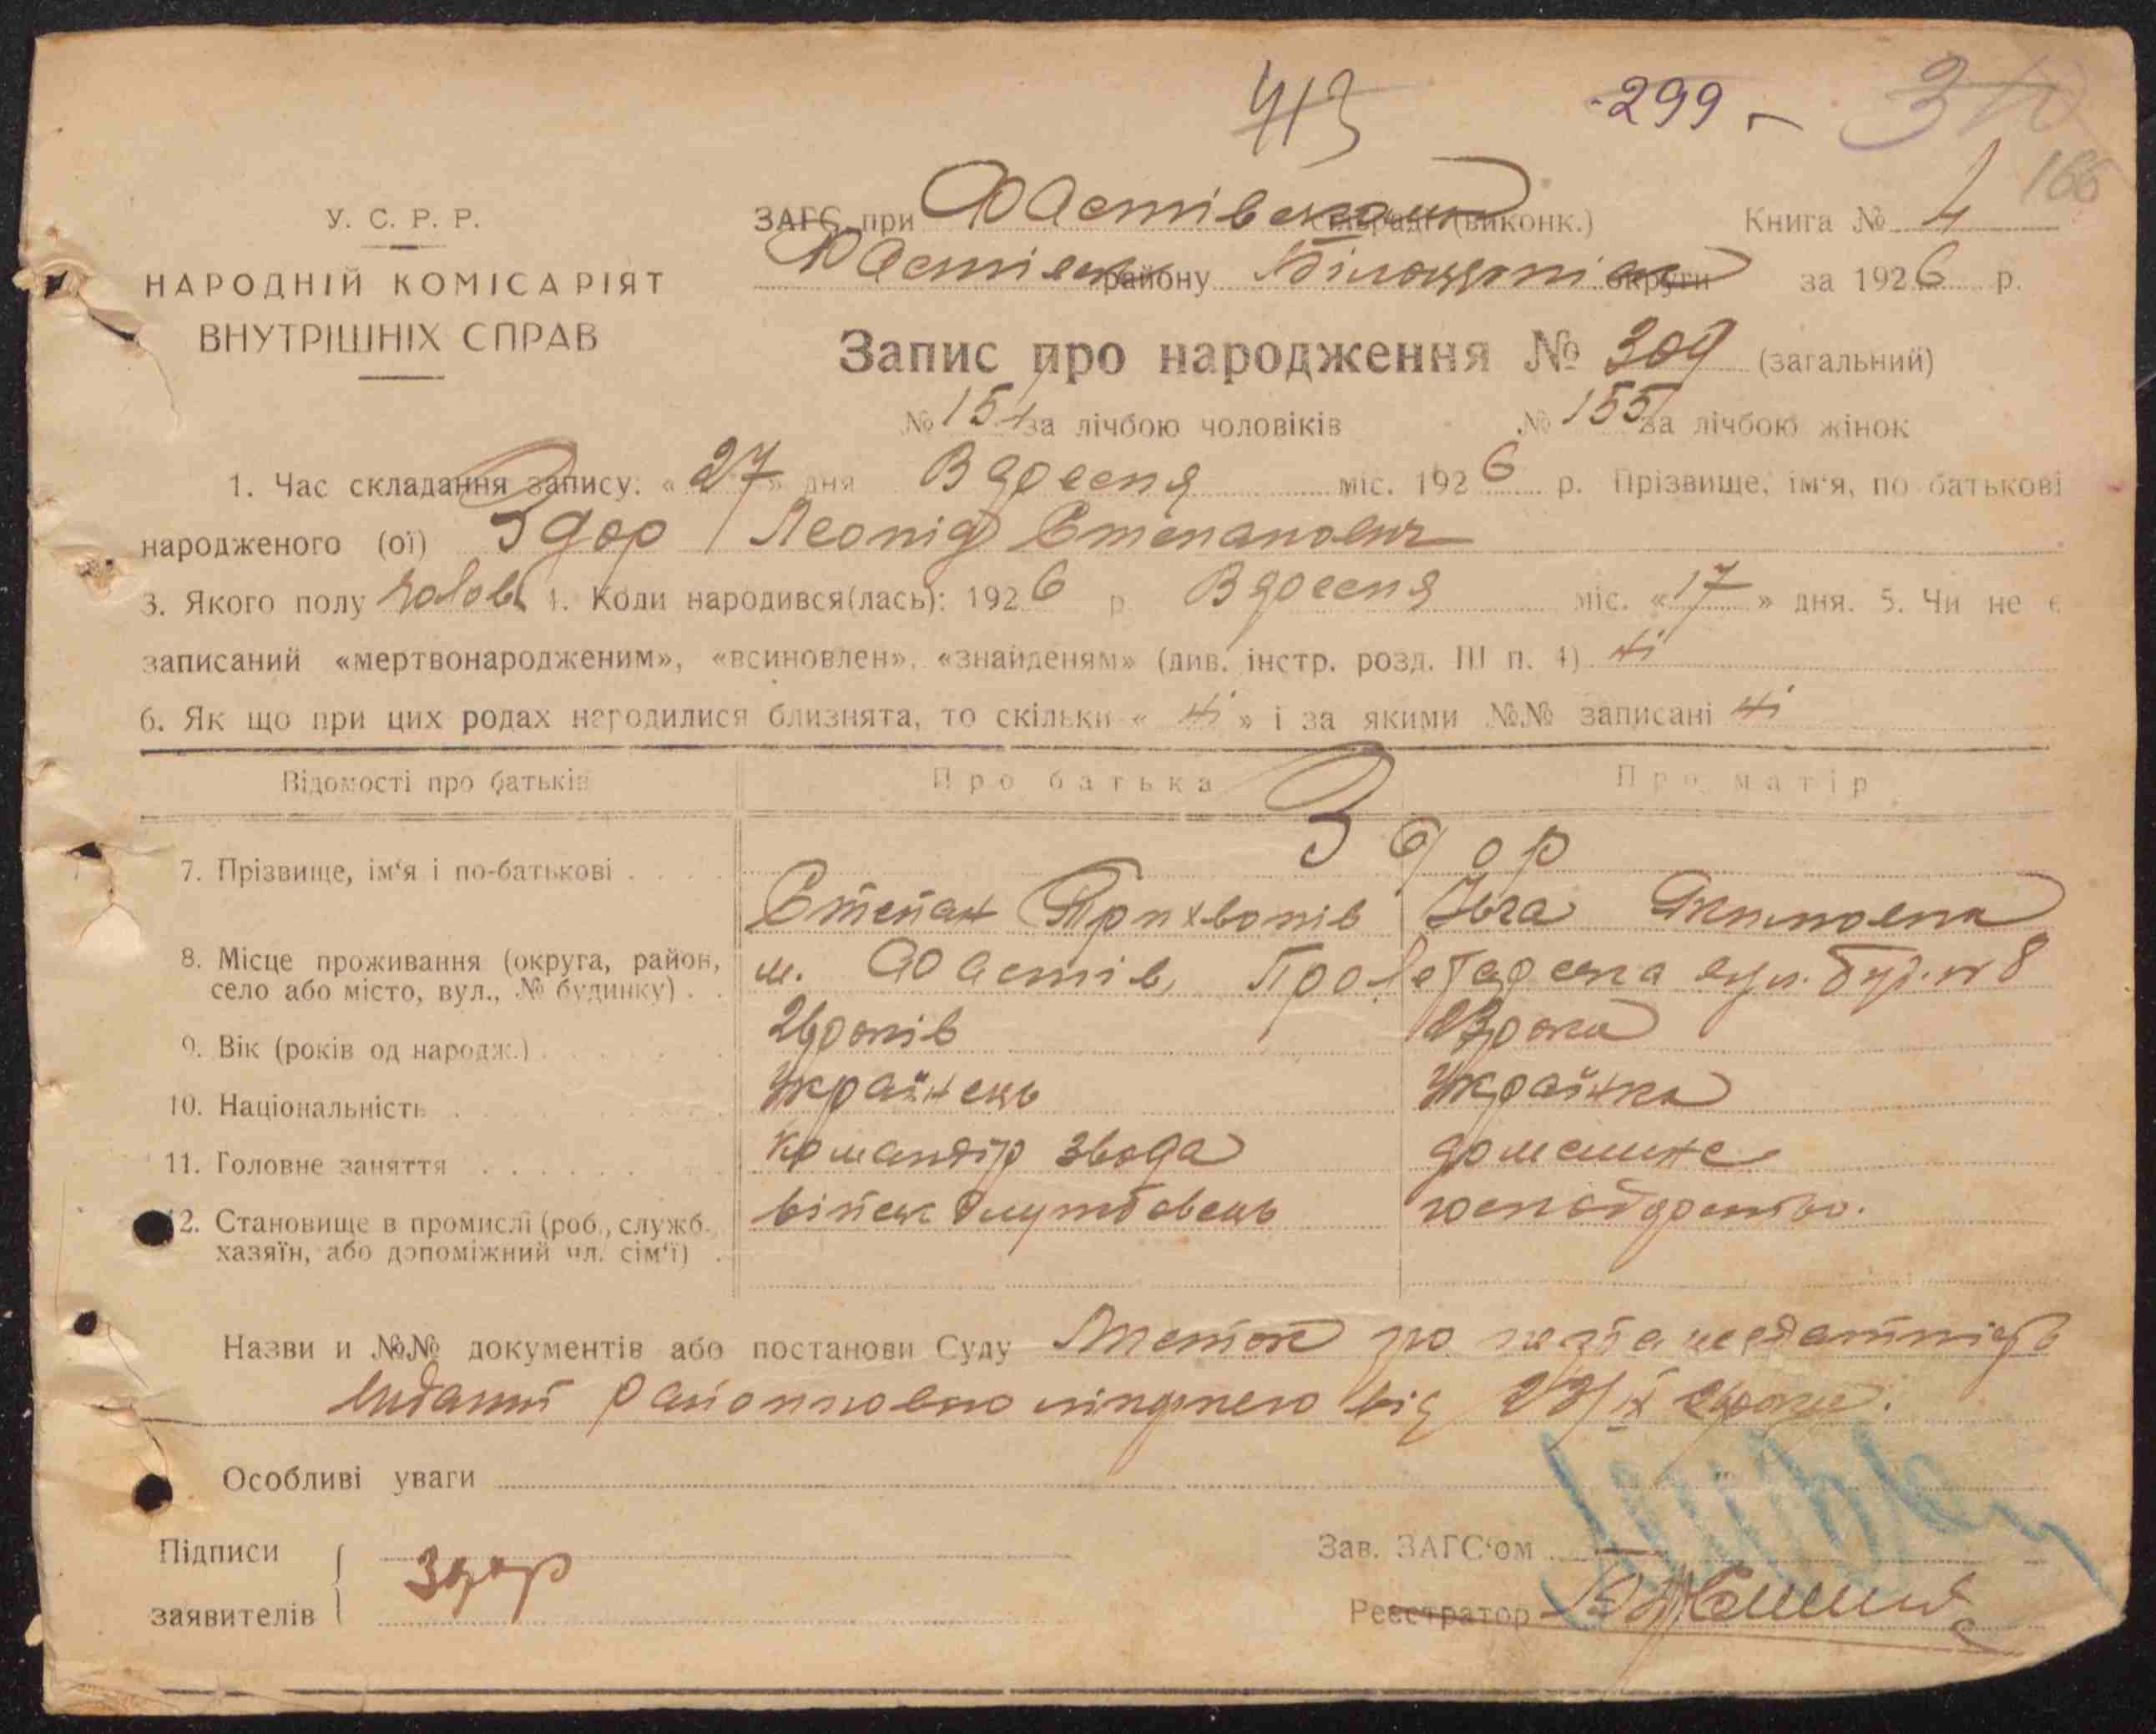 413 299 -
166
У. С. Р. Р.
НАРОДНІЙ КОМІСАРІЯТ
ВНУТРІШНІХ СПРАВ
ЗАГС при Фастівськом сільраді (виконк.) Книга № 4
Фастівськ району Білоцерківськ округи за 1926 р.
Запис про народження № 309 (загальний)
№ 154 за лічбою чоловіків № 155 за лічбою жінок
1. Час складання запису: « 27 » дня Вдресня міс. 1926 р. Прізвище, ім'я, по батькові
народженого (ої) Здор Леонід Степанович
3. Якого полу чолов. 4. Коли народився(лась): 1926 р. Вдресня міс. « 17 » дня. 5. Чи не є
записаний «мертвонародженим», «всиновлен», «знайденям» (див. інстр. розд. III п. 4) ні
6. Як що при цих родах народилися близнята, то скільки « ні » і за якими №№ записані ні
Відомості про батьків Про батька Про матір
Здор
7. Прізвище, ім'я і по-батькові Степан Трихвонів Івга Якимовна
8. Місце проживання (округа, район,
село або місто, вул., № будинку) м. Фастів, Пролетарська вул. буд. № 8
9. Вік (років од народж.) 26 років 23 роки
10. Національність Українець Українка
11. Головне заняття командір звода домашнє
12. Становище в промислі (роб., служб.
хазяїн, або допоміжний чл. сім'ї) військ службовець
Назви и №№ документів або постанови Суду
виданий від 23/IX
Особливі уваги
Підписи
заявителів Здор
Зав. ЗАГС'ом
Реєстратор